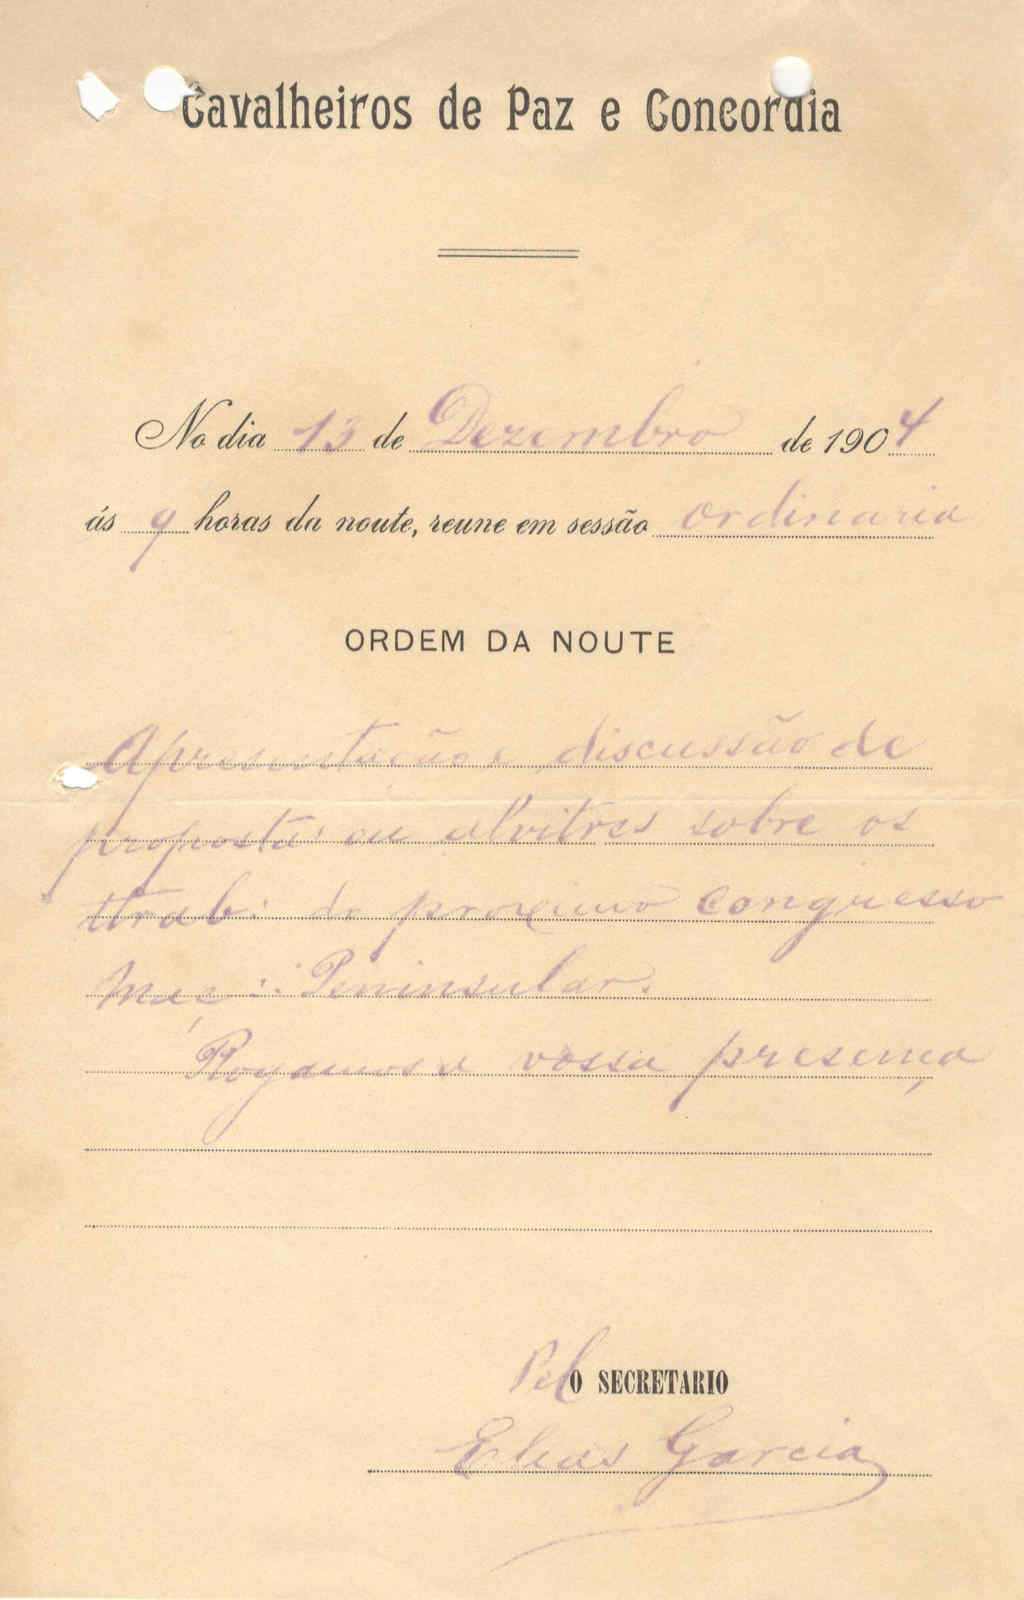 Cavalheiros de Paz e Concordia
No dia 13 de Dezembro de 1904
ás 9 horas da noute, reune em sessão ordinaria
ORDEM DA NOUTE
Apresentação e discussão de
propostas ou alvitres sobre os
trab: do proximo congresso
Maç∴ Peninsular.
Rogamos a vossa presença
Pelo SECRETARIO
Elias Garcia